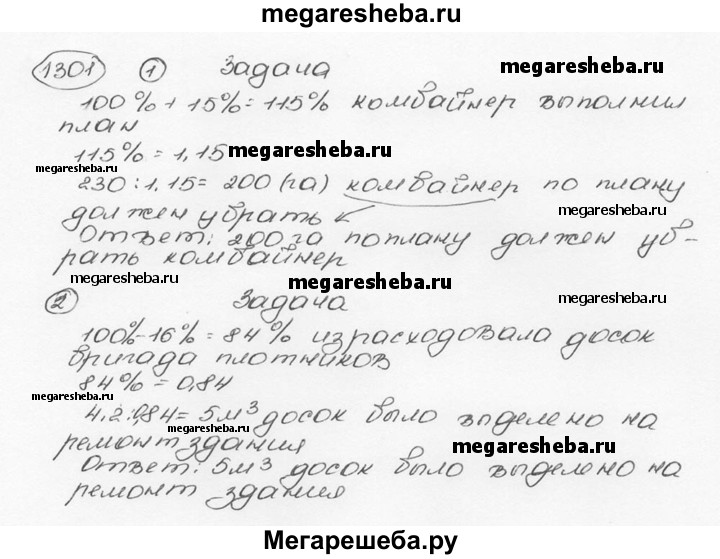 megaresheba.ru
1301 1 Задача megaresheba.ru
100%+15%=115% комбайнер выполнил
план
115%=1,15 megaresheba.ru
megaresheba.ru
230:1,15=200(га) комбайнер по плану
должен убрать megaresheba.ru
Ответ: 200га по плану должен уб-
рать комбайнер
megaresheba.ru megaresheba.ru
2 Задача megaresheba.ru
100%-16%=84% израсходовала досок
бригада плотников
84%=0,84
megaresheba.ru
4,2:0,84=5м³ досок было выделено на
ремонт здания megaresheba.ru
Ответ: 5м³ досок было выделено на
ремонт здания
Мегарешеба.ру